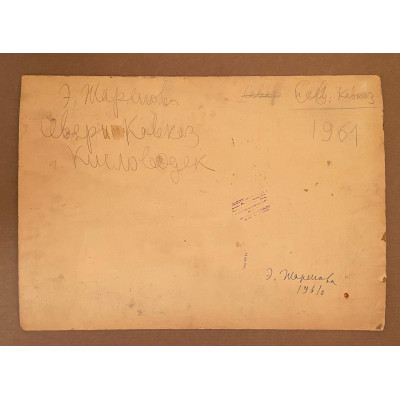 Э. Жаренова
Северн. Кавказ
г. Кисловодск
Сев. Кавказ
1961
Э. Жаренова
1961г